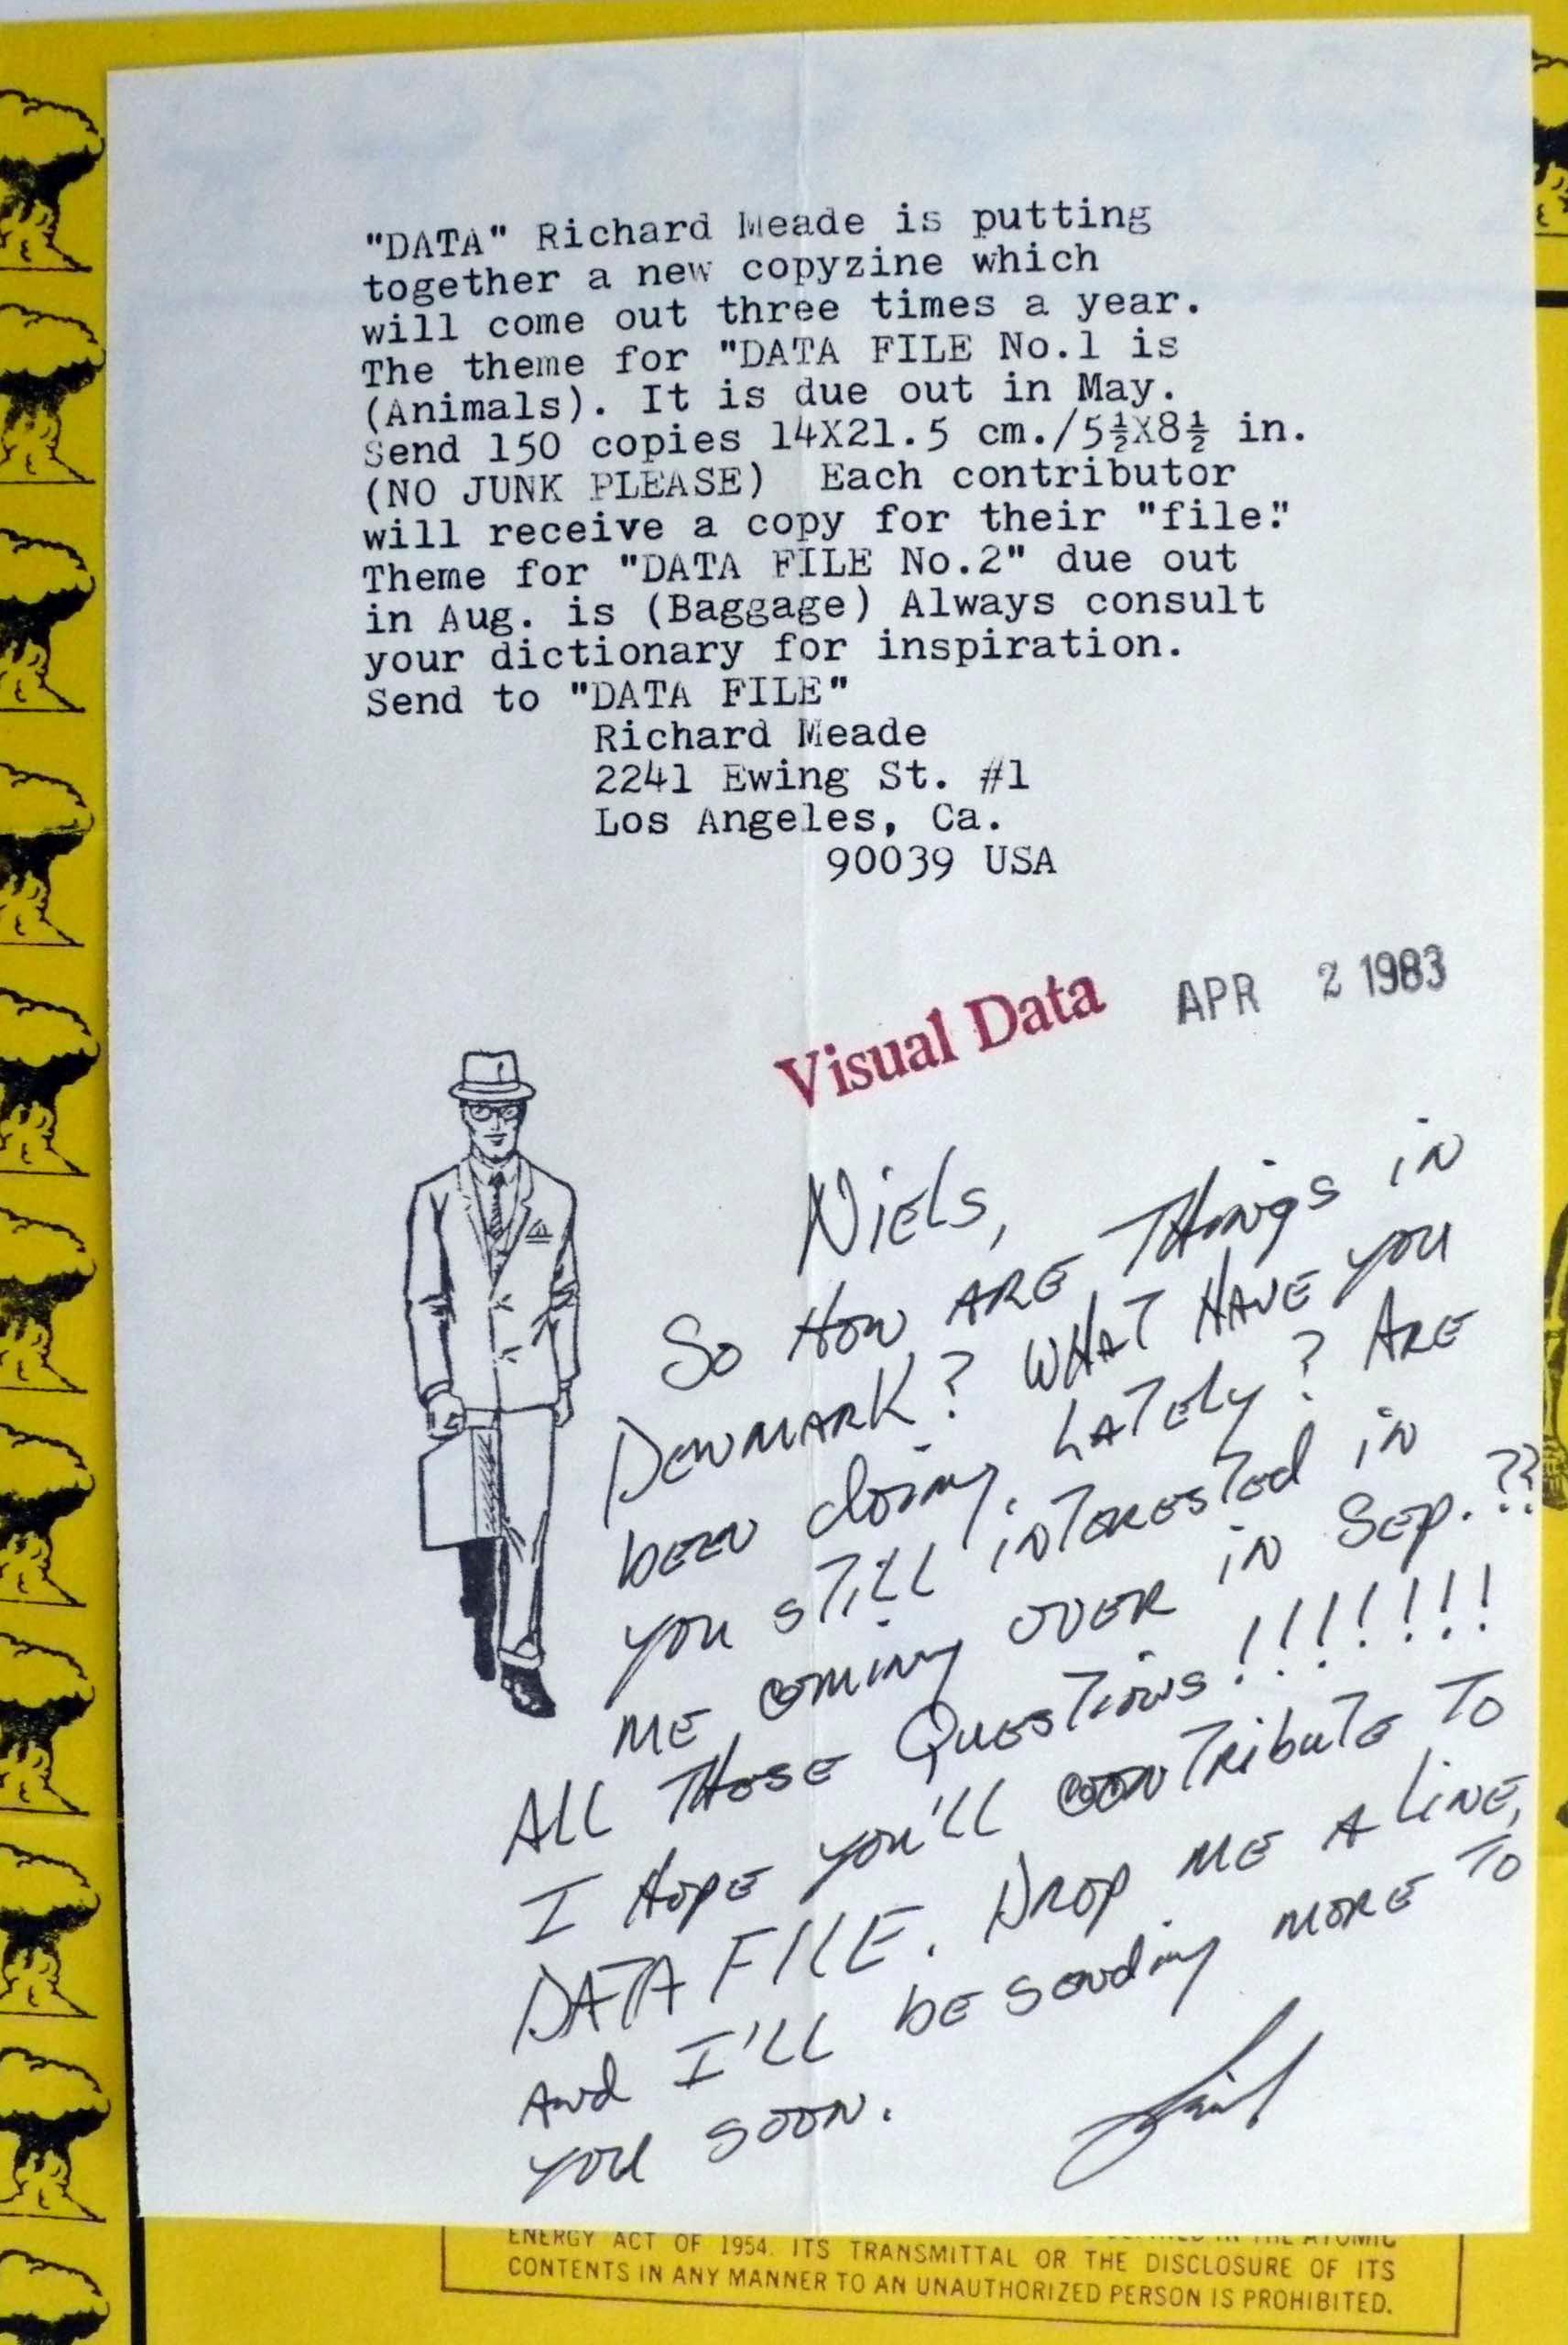 "DATA" Richard Meade is putting
together a new copyzine which
will come out three times a year.
The theme for "DATA FILE No.1 is
(Animals). It is due out in May.
Send 150 copies 14X21.5 cm./5½X8½ in.
(NO JUNK PLEASE)  Each contributor
will receive a copy for their "file."
Theme for "DATA FILE No.2" due out
in Aug. is (Baggage) Always consult
your dictionary for inspiration.
Send to "DATA FILE"
Richard Meade
2241 Ewing St. #1
Los Angeles, Ca.
90039 USA
Visual Data APR 2 1983
Niels,
So How ARE THings in
DENMARK? WHAT HAVE you
been doing, LATELY? ARE
you STILL inTERESTed in
ME coming OVER in Sep.??
ALL THESE QuesTions!!!!!!!
I HOPE you'LL conTRibuTE TO
DATA FILE. DROP ME A LiNE,
And I'LL be Sending MORE TO
you SOON.
ENERGY ACT OF 1954. ITS TRANSMITTAL OR THE DISCLOSURE OF ITS
CONTENTS IN ANY MANNER TO AN UNAUTHORIZED PERSON IS PROHIBITED.